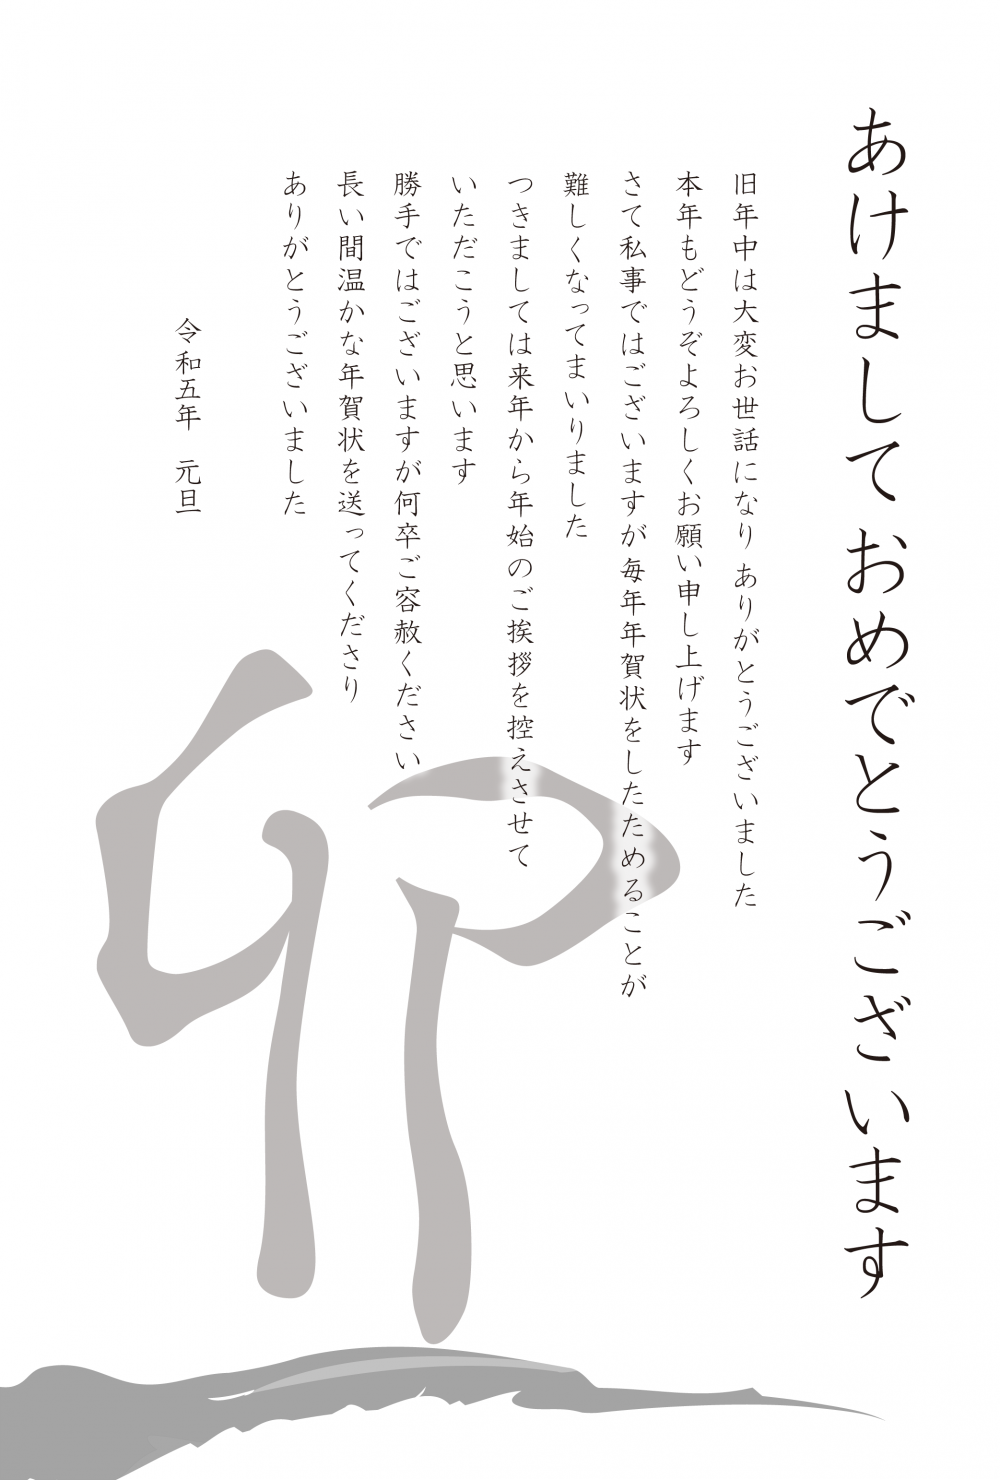 あけまして おめでとうございます
旧年中は大変お世話になり ありがとうございました
本年もどうぞよろしくお願い申し上げます
さて私事ではございますが毎年年賀状をしたためることが
難しくなってまいりました
つきましては来年から年始のご挨拶を控えさせて
いただこうと思います
勝手ではございますが何卒ご容赦ください
長い間温かな年賀状を送ってくださり
ありがとうございました
令和五年 元旦
卯